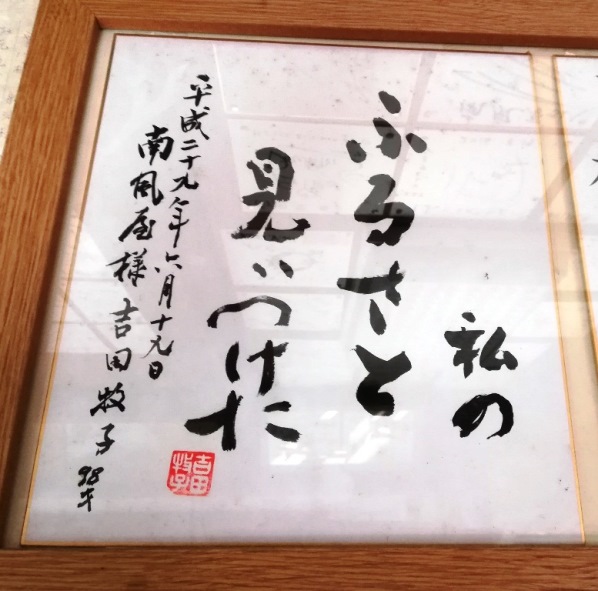 私の
ふるさと
見つけた
平成二十九年六月十九日
南風屋様 吉田牧子 98才
吉田
牧子